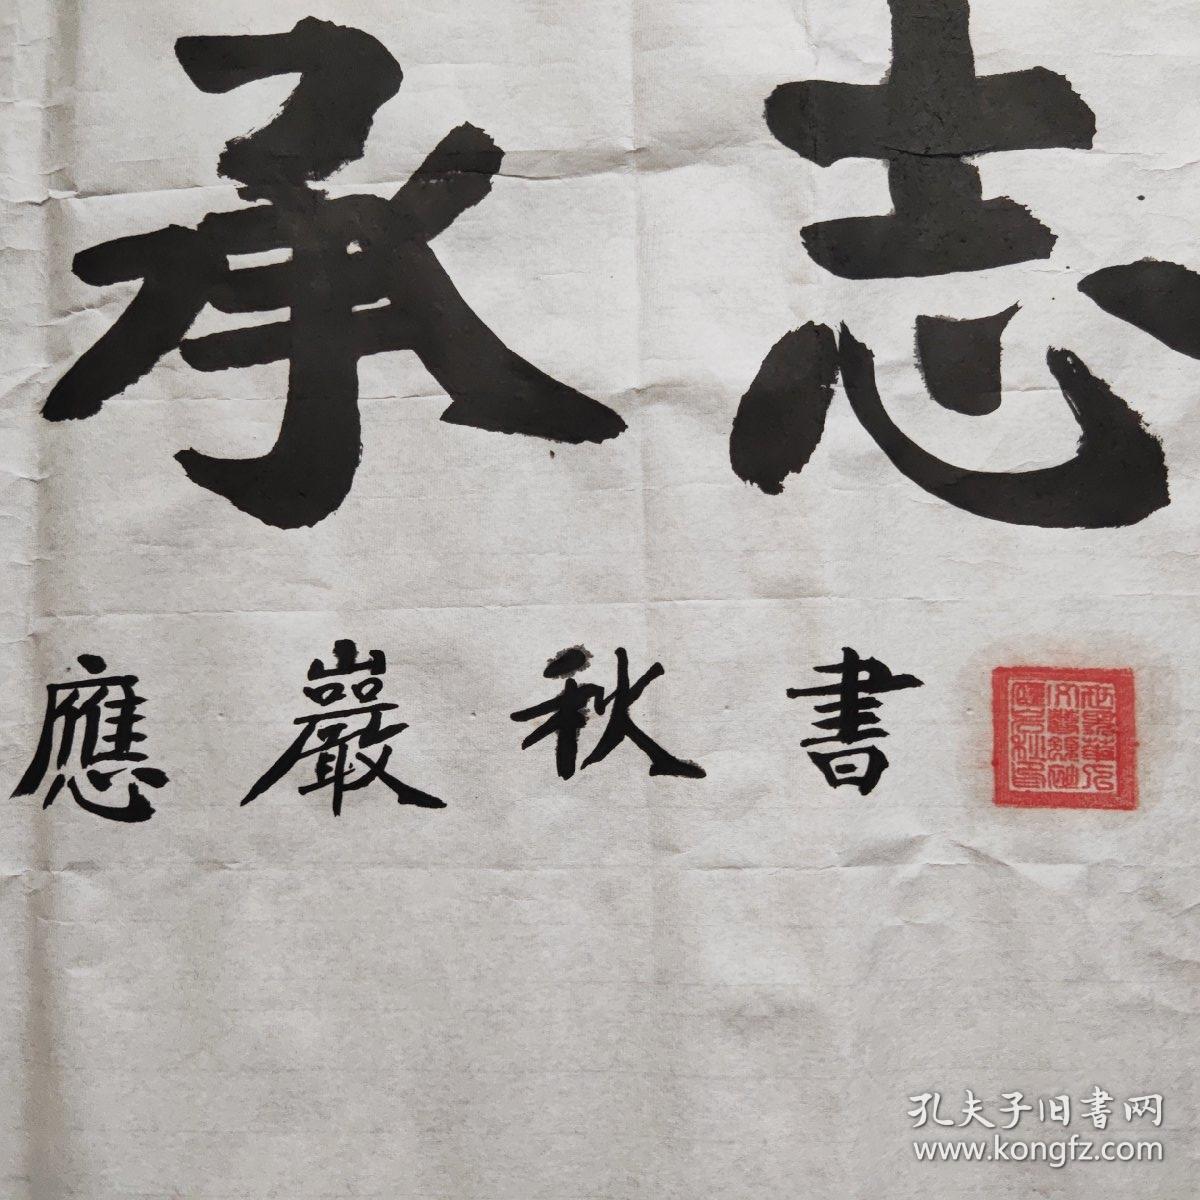 承志
應嚴秋書
孔夫子旧書网
www.kongfz.com